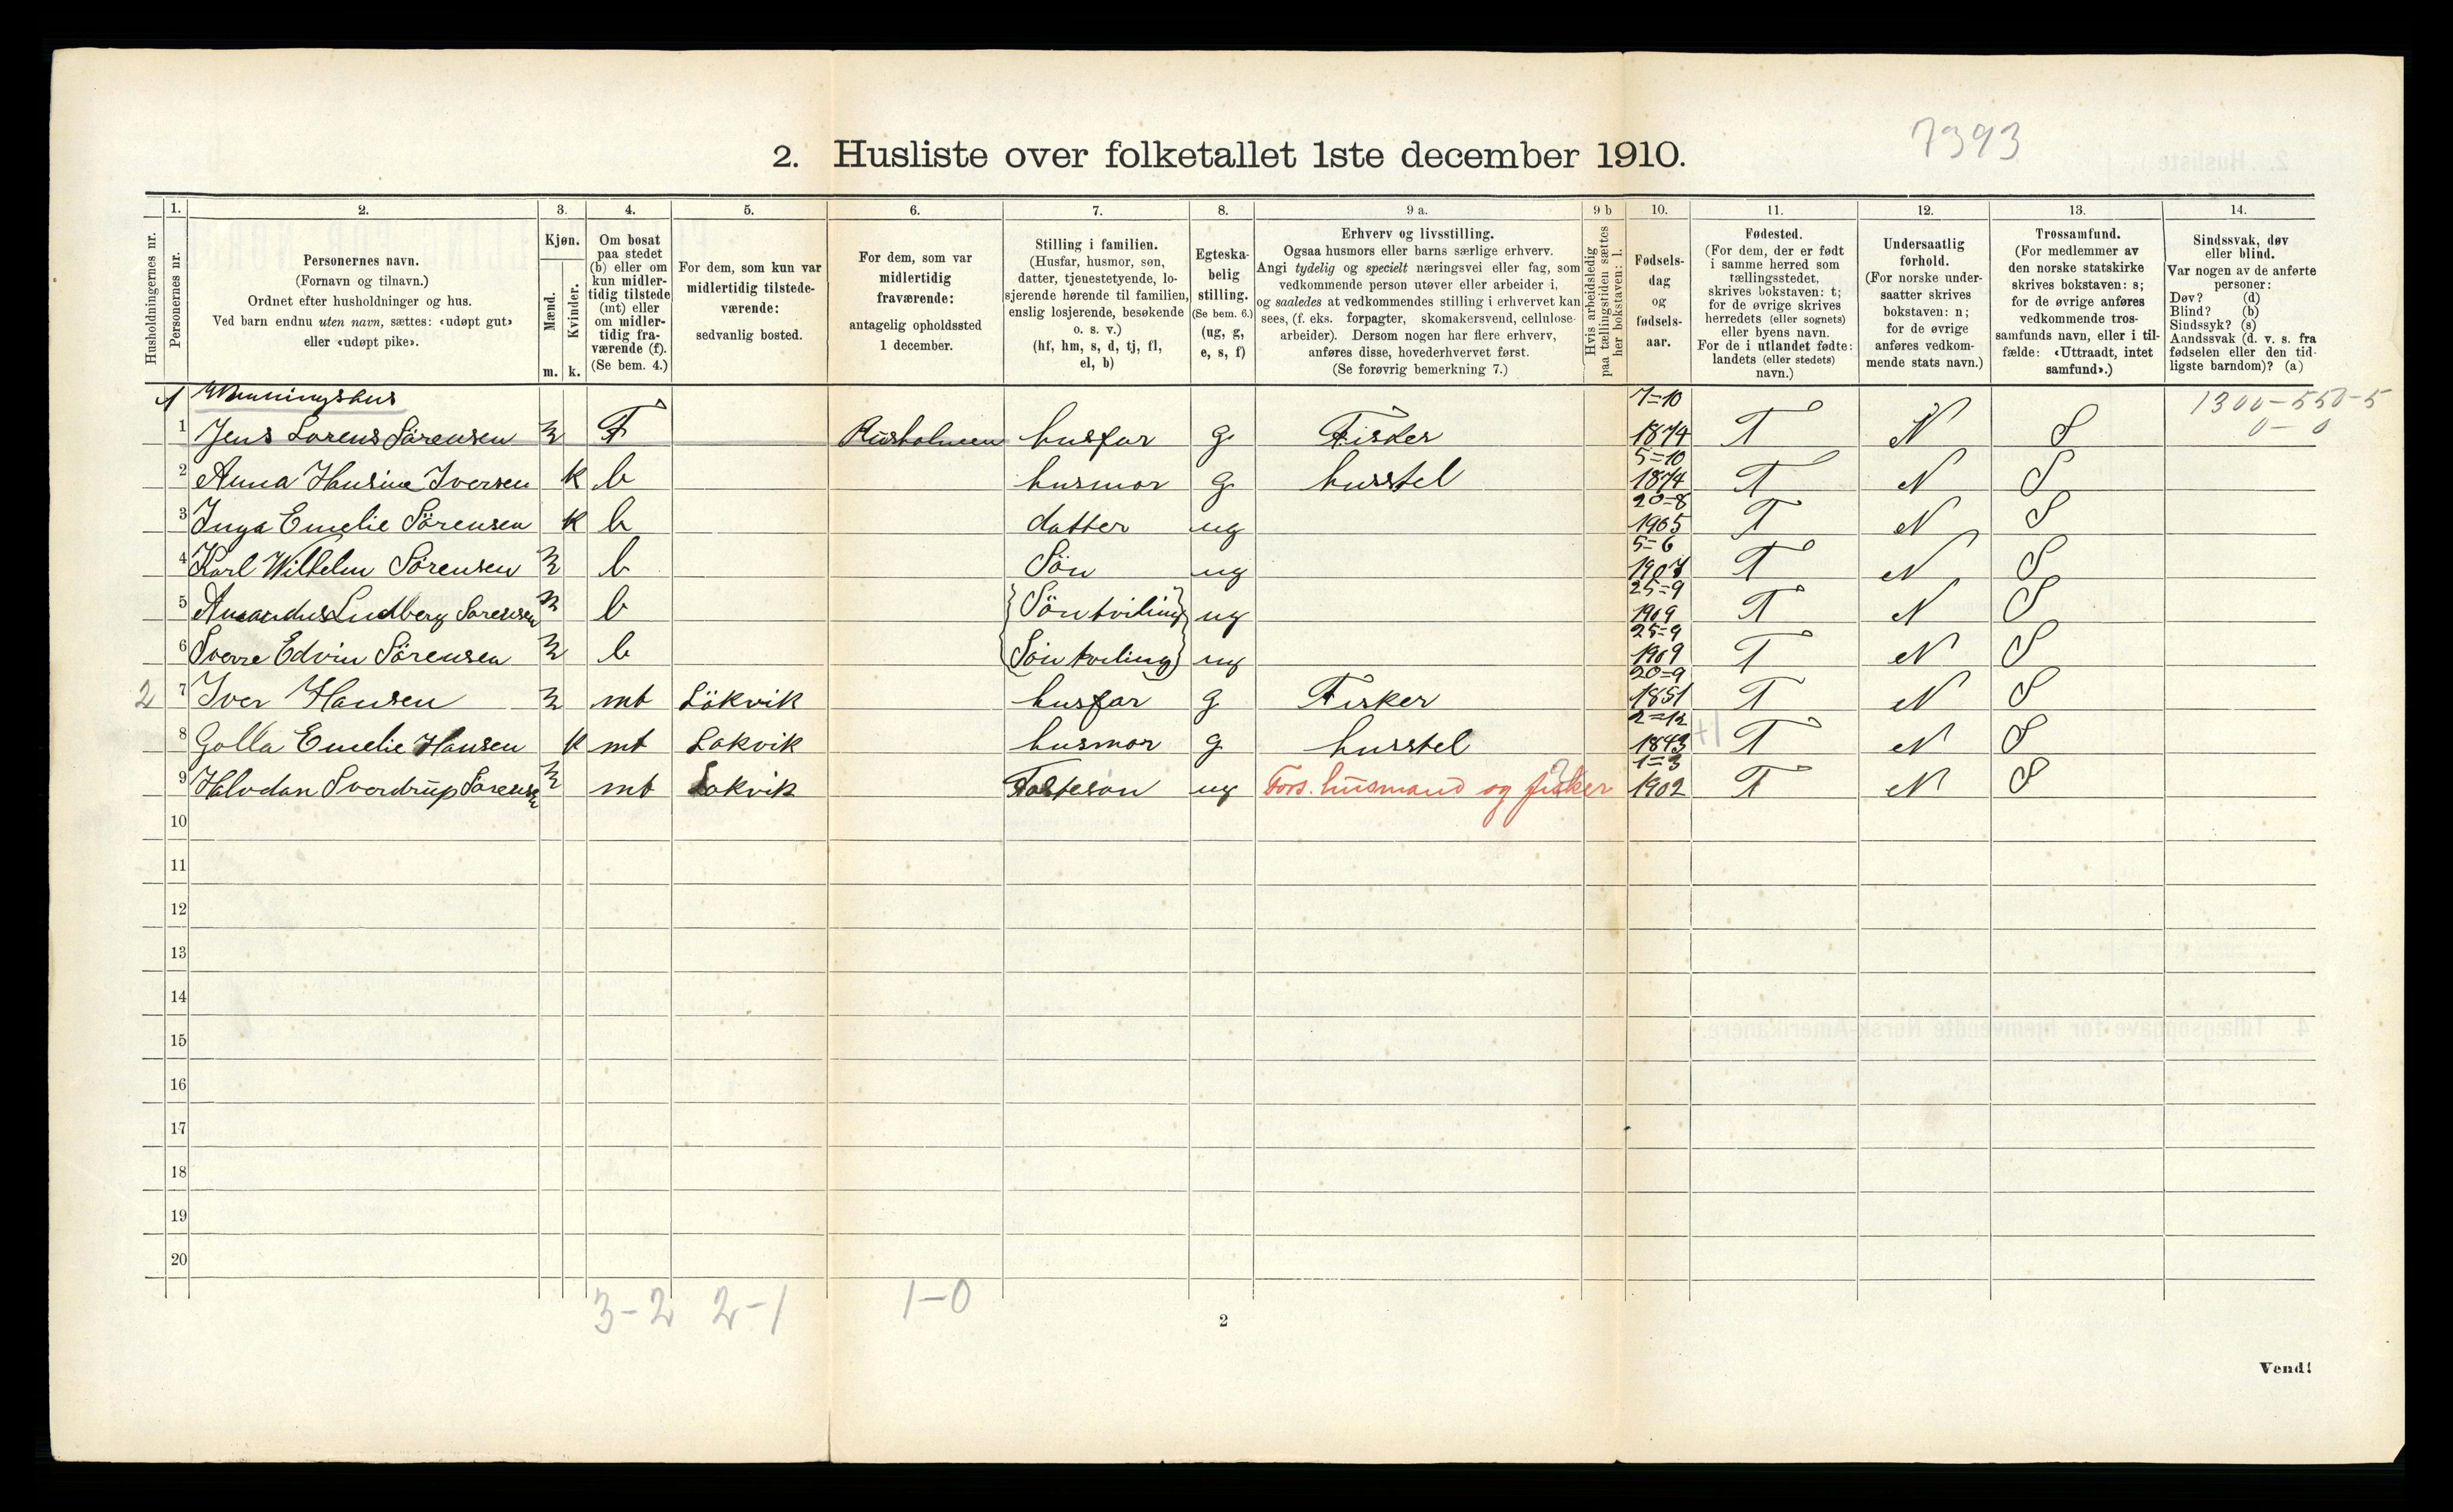 7393
2. Husliste over folketallet 1ste december 1910.
1. 2. 3. 4. 5. 6. 7. 8. 9 a. 9 b 10. 11. 12. 13. 14.
Husholdningernes nr.
Personernes nr.
Personernes navn.
(Fornavn og tilnavn.)
Ordnet efter husholdninger og hus.
Ved barn endnu uten navn, sættes: «udøpt gut»
eller «udøpt pike».
Kjøn.
Mænd.
Kvinder.
m. k.
Om bosat
paa stedet
(b) eller om
kun midler-
tidig tilstede
(mt) eller
om midler-
tidig fra-
værende (f).
(Se bem. 4.)
For dem, som kun var
midlertidig tilstede-
værende:
sedvanlig bosted.
For dem, som var
midlertidig
fraværende:
antagelig opholdssted
1 december.
Stilling i familien.
(Husfar, husmor, søn,
datter, tjenestetyende, lo-
sjerende hørende til familien,
enslig losjerende, besøkende
o. s. v.)
(hf, hm, s, d, tj, fl,
el, b)
Egteska-
belig
stilling.
(Se bem. 6.)
(ug, g,
e, s, f)
Erhverv og livsstilling.
Ogsaa husmors eller barns særlige erhverv.
Angi tydelig og specielt næringsvei eller fag, som
vedkommende person utøver eller arbeider i,
og saaledes at vedkommendes stilling i erhvervet kan
sees, (f. eks. forpagter, skomakersvend, cellulose-
arbeider). Dersom nogen har flere erhverv,
anføres disse, hovederhvervet først.
(Se forøvrig bemerkning 7.)
Hvis arbeidsledig
paa tællingstiden sættes
her bokstaven: l.
Fødsels-
dag
og
fødsels-
aar.
Fødested.
(For dem, der er født
i samme herred som
tællingsstedet,
skrives bokstaven: t;
for de øvrige skrives
herredets (eller sognets)
eller byens navn.
For de i utlandet fødte:
landets (eller stedets)
navn.)
Undersaatlig
forhold.
(For norske under-
saatter skrives
bokstaven: n;
for de øvrige
anføres vedkom-
mende stats navn.)
Trossamfund.
(For medlemmer av
den norske statskirke
skrives bokstaven: s;
for de øvrige anføres
vedkommende tros-
samfunds navn, eller i til-
fælde: «Uttraadt, intet
samfund».)
Sindssvak, døv
eller blind.
Var nogen av de anførte
personer:
Døv? (d)
Blind? (b)
Sindssyk? (s)
Aandssvak (d. v. s. fra
fødselen eller den tid-
ligste barndom)? (a)
1 7=10 1300-550-5
1 Jens Lorens Sörensen m F husfar g Fisker 1874 T N S 0-0
5=10
2 Anna Hansine Iversen k b husmor g husstel 1874 T N S
20=8
3 Inga Emelie Sörensen k b datter ug 1905 T N S
5=6
4 Karl Wilhelm Sörensen m b Sön ug 1907 T N S
25=9
5 Amandus Ludberg Sorensen m b {Sön tviling} ug 1909 T N S
25=9
6 Sverre Edvin Sörensen m b {Sön tviling} ug 1909 T N S
20=9
2 7 Iver Hansen m mt Lökvik husfar g Fisker 1851 T N S
2=12
8 Golla Emelie Hansen k mt Lokvik husmor g husstel 1843 +1 T N S
1=3
9 Halvdan Sverdrup Sörensen m mt Lokvik Fosteson ug Fors. husmand og fisker 1902 T N S
10
11
12
13
14
15
16
17
18
19
20
3-2 2-1 1-0
2
Vend!